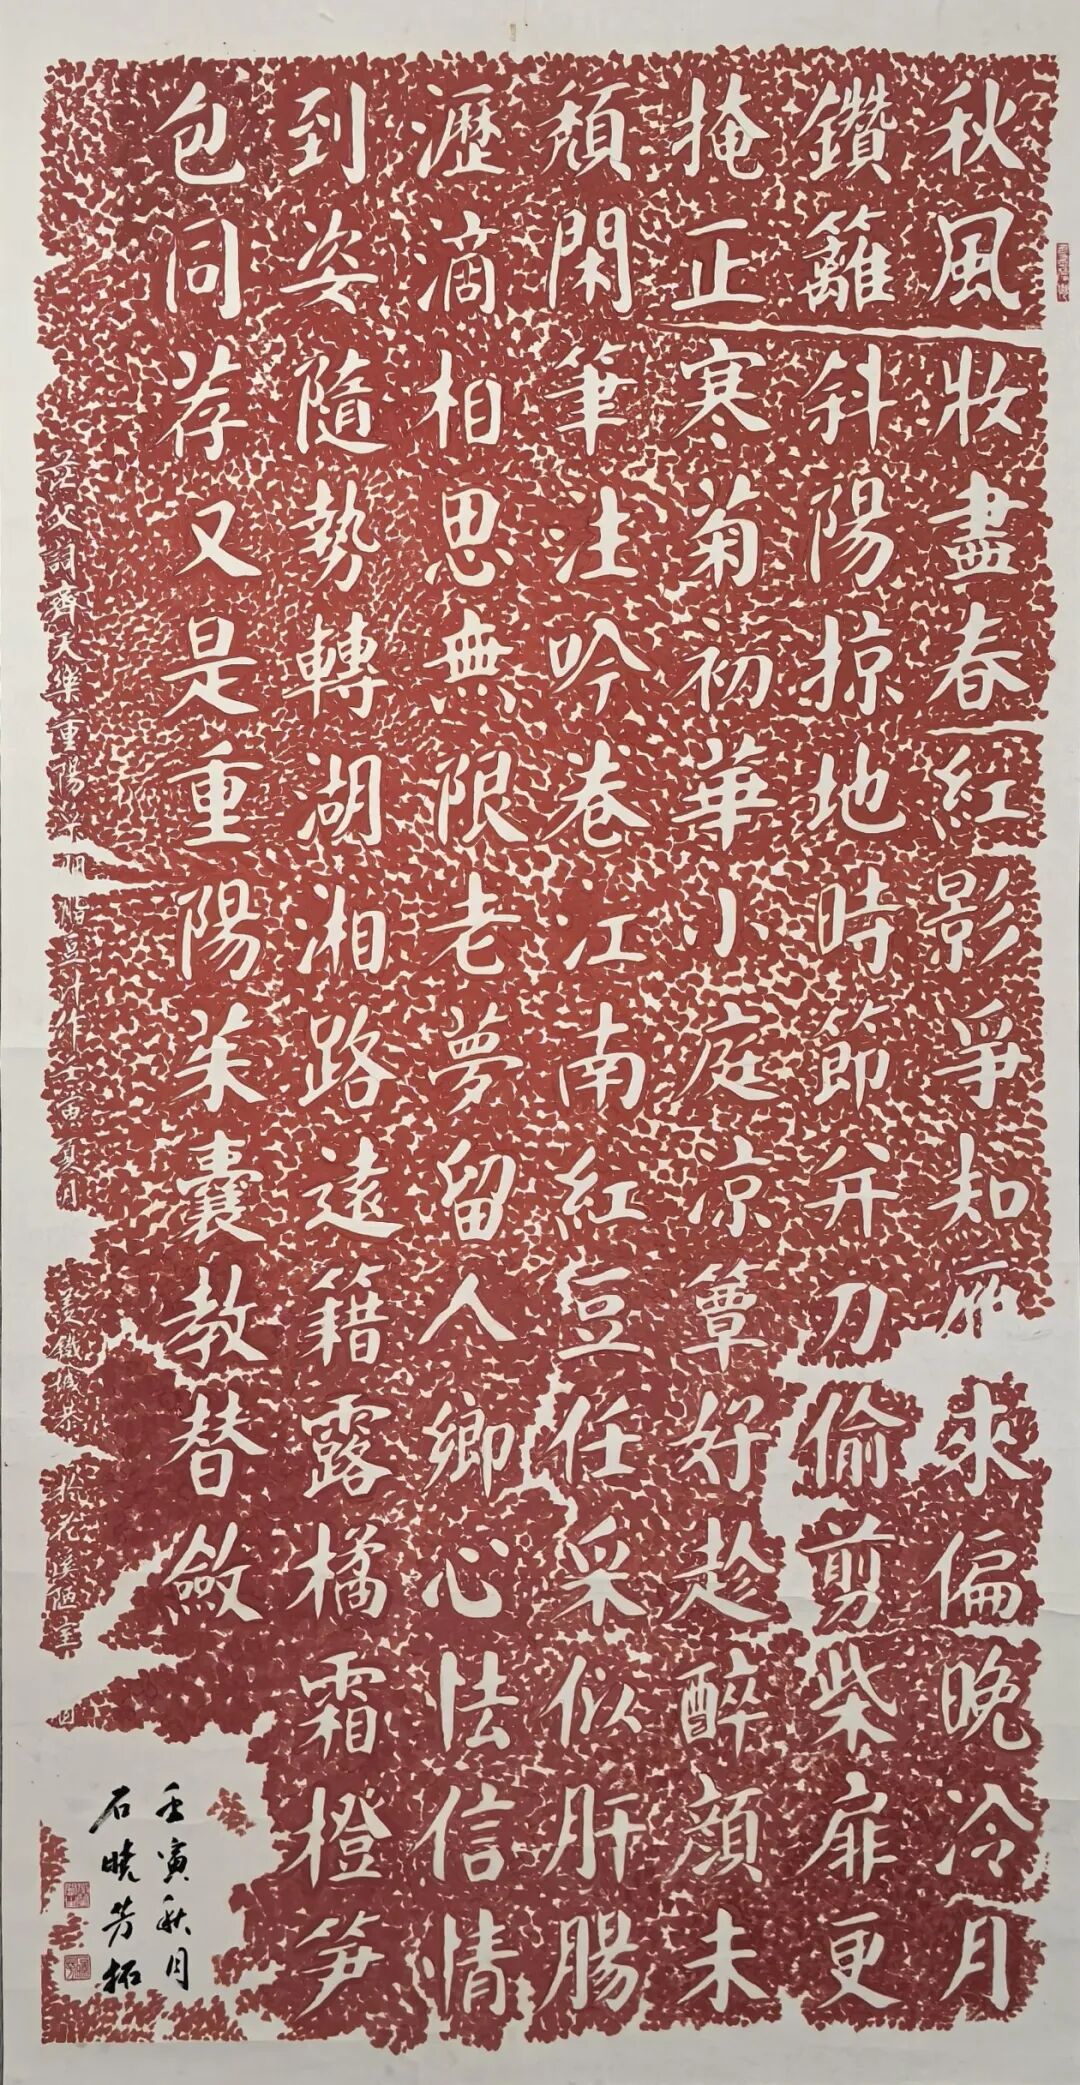 秋風妝盡春紅影爭知雁來偏晚冷月
鑽籬斜陽掠地時節并刀偷剪柴扉更
掩正寒菊初華小庭凉簟好趁醉顏未
頹閑筆注吟卷江南紅豆任采似肝腸
瀝滴相思無限老夢留人鄉心怯信情
到姿隨勢轉湖湘路遠籍露橘霜橙笋
包同荐又是重陽茱囊教替斂
詞齊天樂重陽 壬寅夏月 鐵城 於花溪陋室
壬寅秋月
石曉芳拓